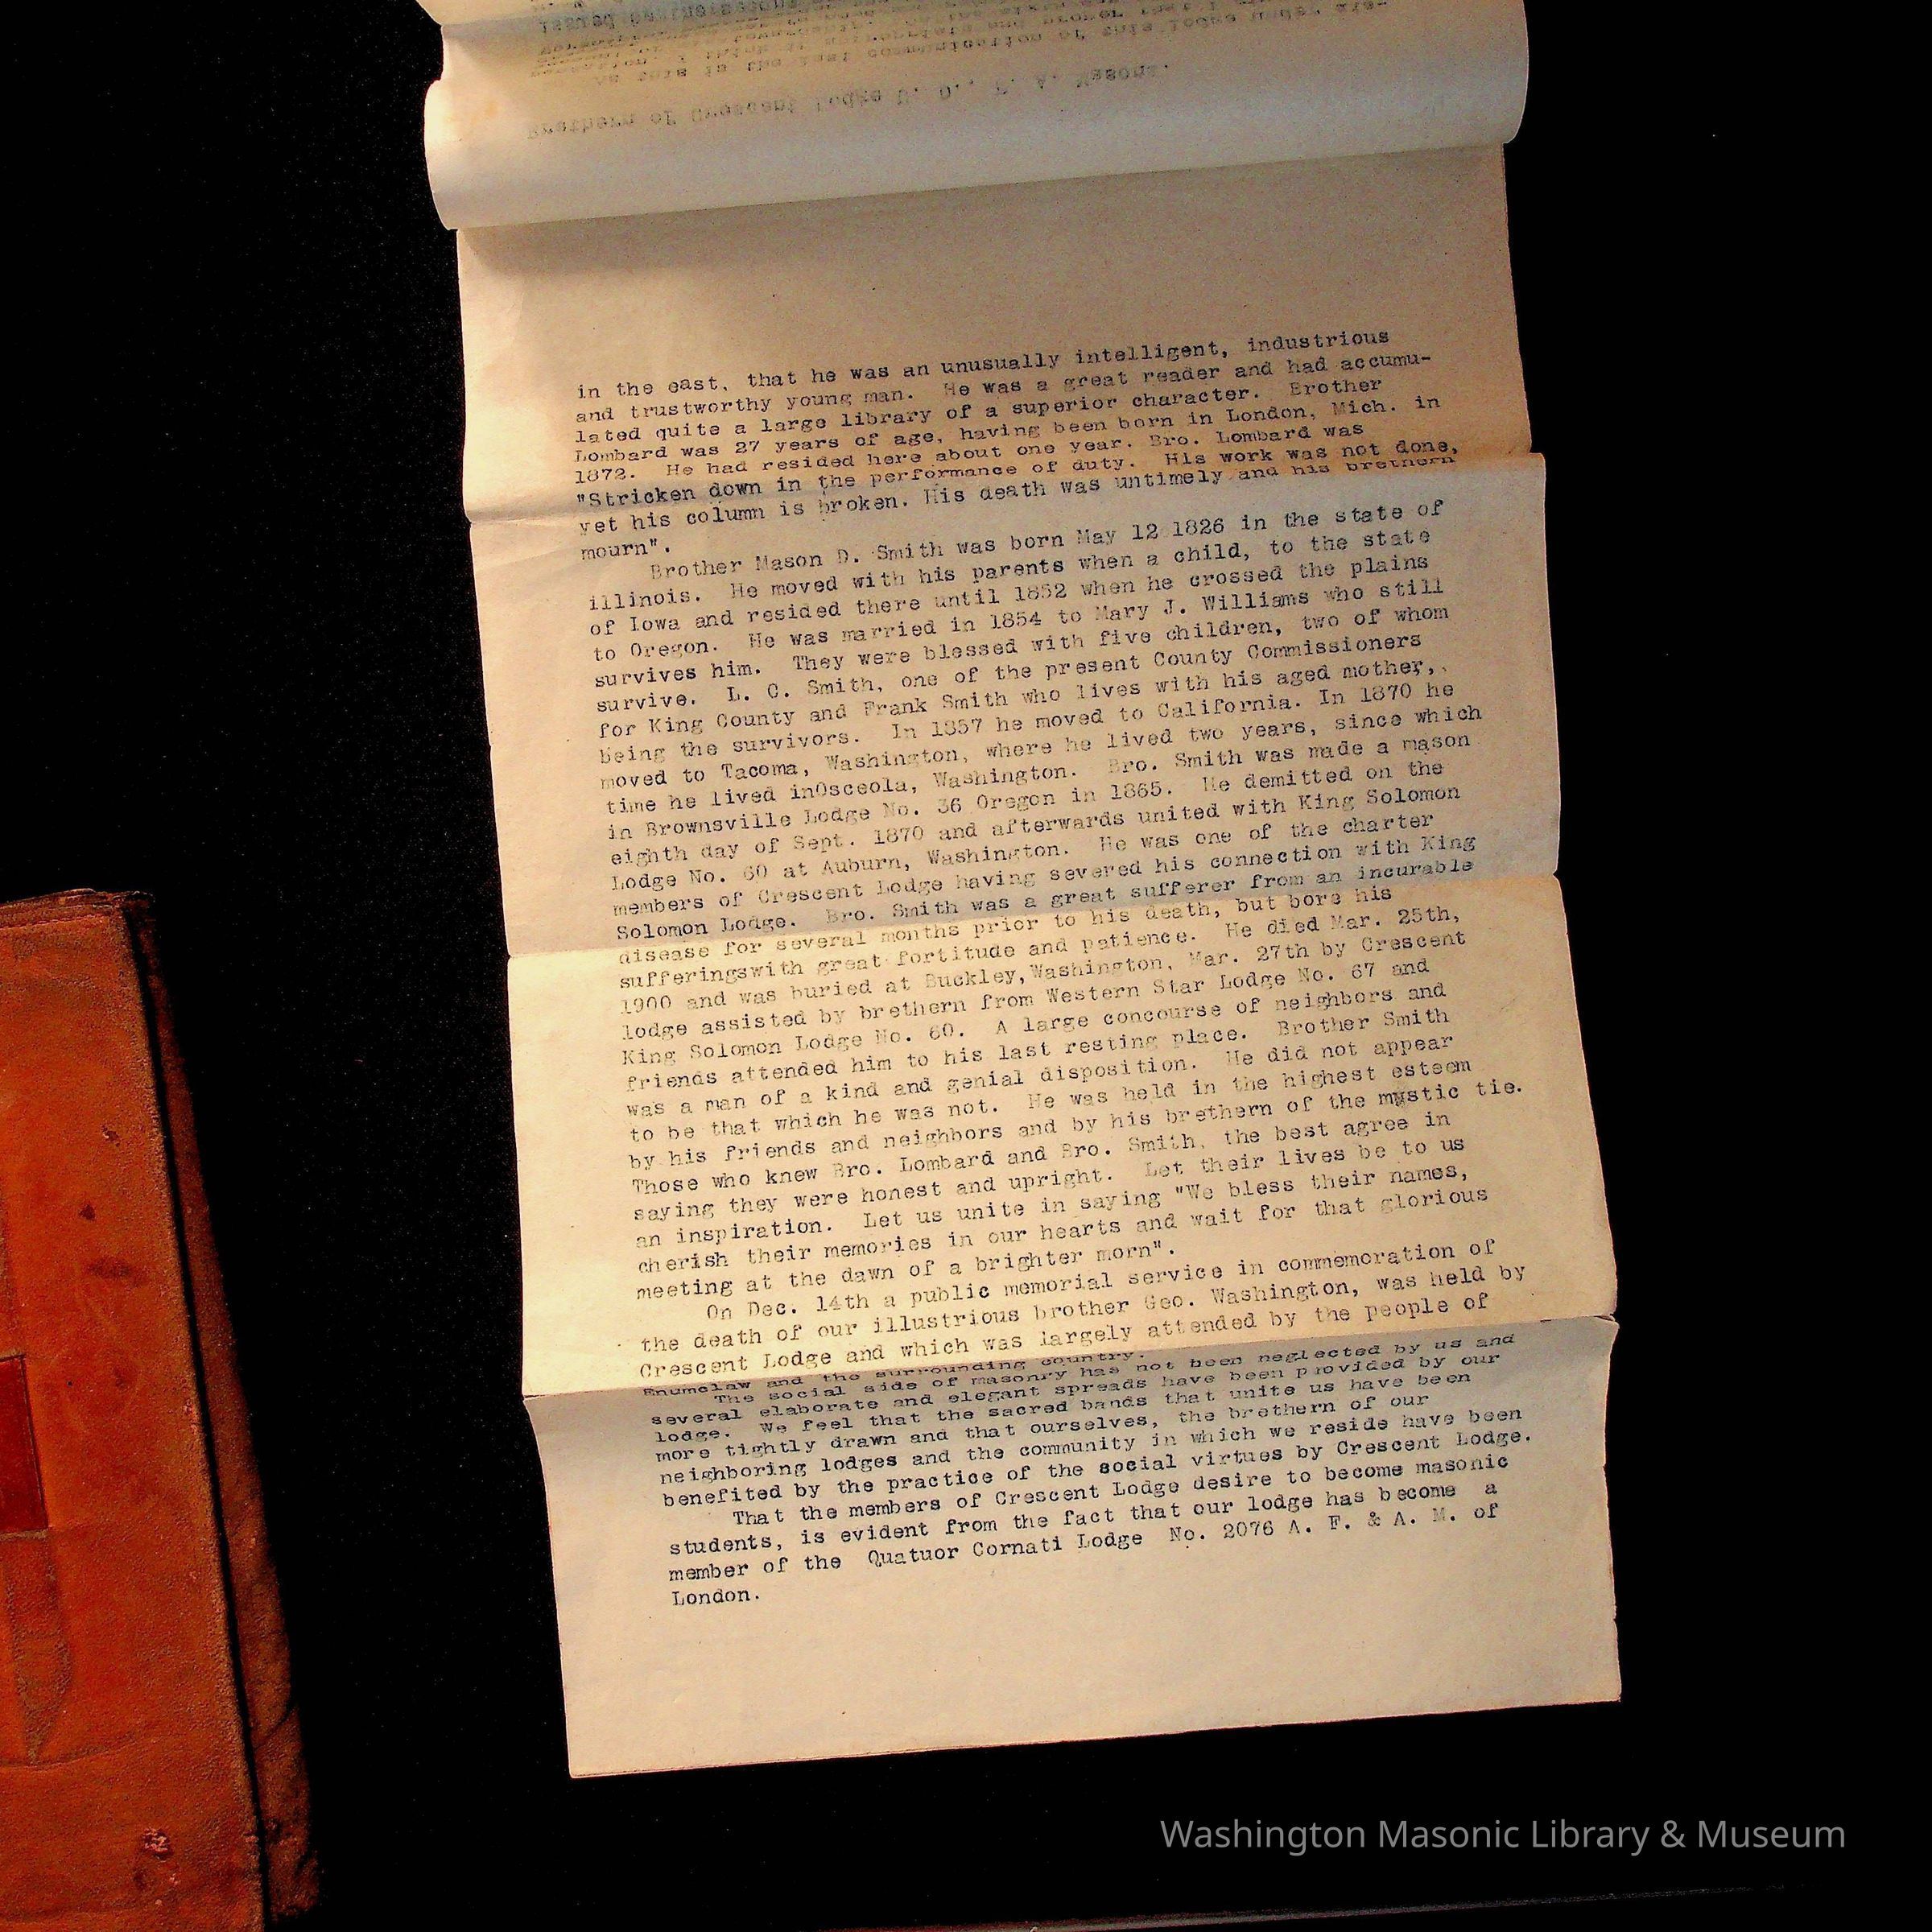 Brethern of Crescent Lodge U. D., F. A. Masons.
As this is the last communication of this lodge under dis-
in the east, that he was an unusually intelligent, industrious
and trustworthy young man. He was a great reader and had accumu-
lated quite a large library of a superior character. Brother
Lombard was 27 years of age, having been born in London, Mich. in
1872. He had resided here about one year. Bro. Lombard was
"Stricken down in the performance of duty. His work was not done,
yet his column is broken. His death was untimely and his brethern
mourn".
Brother Mason D. Smith was born May 12 1826 in the state of
illinois. He moved with his parents when a child, to the state
of Iowa and resided there until 1852 when he crossed the plains
to Oregon. He was married in 1854 to Mary J. Williams who still
survives him. They were blessed with five children, two of whom
survive. L. C. Smith, one of the present County Commissioners
for King County and Frank Smith who lives with his aged mother,
being the survivors. In 1857 he moved to California. In 1870 he
moved to Tacoma, Washington, where he lived two years, since which
time he lived inOsceola, Washington. Bro. Smith was made a mason
in Brownsville Lodge No. 36 Oregon in 1865. He demitted on the
eighth day of Sept. 1870 and afterwards united with King Solomon
Lodge No. 60 at Auburn, Washington. He was one of the charter
members of Crescent Lodge having severed his connection with King
Solomon Lodge. Bro. Smith was a great sufferer from an incurable
disease for several months prior to his death, but bore his
sufferingswith great fortitude and patience. He died Mar. 25th,
1900 and was buried at Buckley,Washington, Mar. 27th by Crescent
lodge assisted by brethern from Western Star Lodge No. 67 and
King Solomon Lodge No. 60. A large concourse of neighbors and
friends attended him to his last resting place. Brother Smith
was a man of a kind and genial disposition. He did not appear
to be that which he was not. He was held in the highest esteem
by his friends and neighbors and by his brethern of the mystic tie.
Those who knew Bro. Lombard and Bro. Smith, the best agree in
saying they were honest and upright. Let their lives be to us
an inspiration. Let us unite in saying "We bless their names,
cherish their memories in our hearts and wait for that glorious
meeting at the dawn of a brighter morn".
On Dec. 14th a public memorial service in commemoration of
the death of our illustrious brother Geo. Washington, was held by
Crescent Lodge and which was largely attended by the people of
Enumclaw and the surrounding country.
The social side of masonry has not been neglected by us and
several elaborate and elegant spreads have been provided by our
lodge. We feel that the sacred bands that unite us have been
more tightly drawn and that ourselves, the brethern of our
neighboring lodges and the community in which we reside have been
benefited by the practice of the social virtues by Crescent Lodge.
That the members of Crescent Lodge desire to become masonic
students, is evident from the fact that our lodge has become a
member of the Quatuor Cornati Lodge No. 2076 A. F. & A. M. of
London.
Washington Masonic Library & Museum